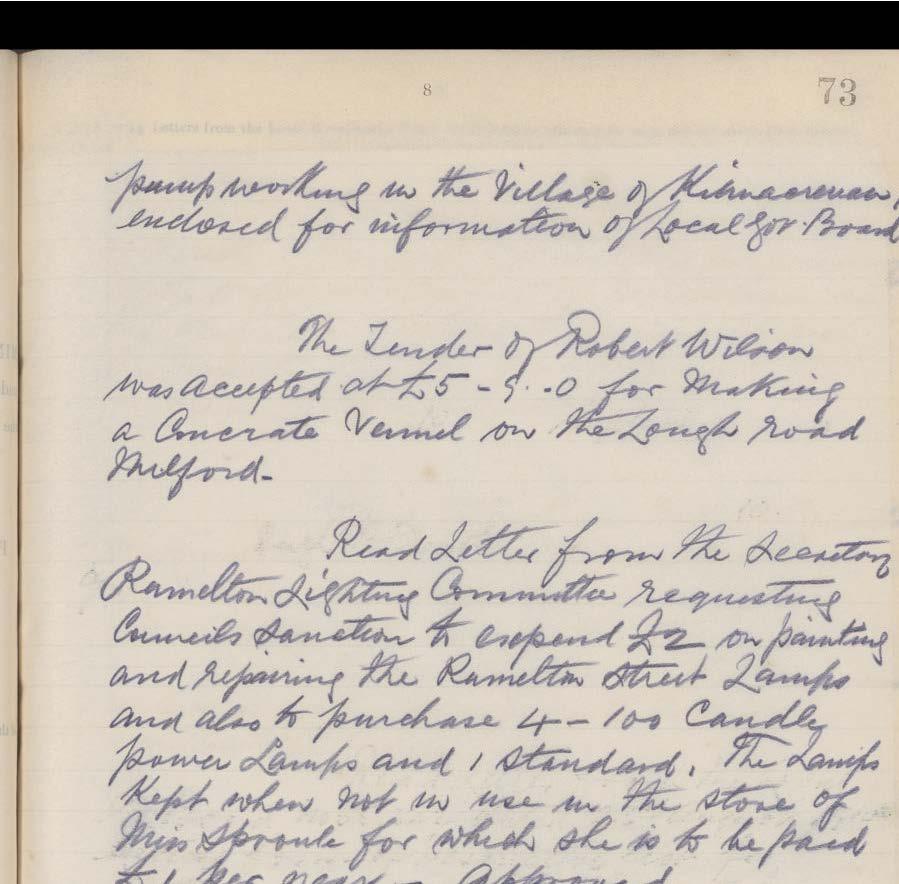 8
73
pump working in the Village of Kilmacrenan,
enclosed for information of Local Gov. Board
The Tender of Robert Wilson
was accepted at £5 - 5 - 0 for Making
a Concrate Vennel on the Lough road
Milford -
Read Letter from the Secretary
Ramelton Lighting Committee requesting
Councils sanction to expend £2 on painting
and repairing the Ramelton Street Lamps
and also to purchase 4 - 100 Candle
power Lamps and 1 standard. The Lamps
Kept when not in use in the store of
Miss Sproule for which she is to be paid
£1 per year - Approved